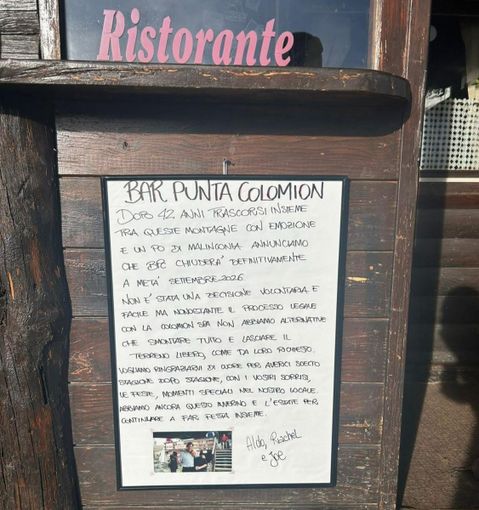 Ristorante
BAR PUNTA COLOMION
DOPO 42 ANNI TRASCORSI INSIEME
TRA QUESTE MONTAGNE CON EMOZIONE
E UN PO DI MALINCONIA ANNUNCIAMO
CHE BPC CHIUDERA' DEFINITIVAMENTE
A METÀ SETTEMBRE 2026
NON E' STATA UNA DECISIONE VOLONTARIA E
FACILE MA NONOSTANTE IL PROCESSO LEGALE
CON LA COLOMION SPA NON ABBIAMO ALTERNATIVE
CHE SMONTARE TUTTO E LASCIARE IL
TERRENO LIBERO, COME DA LORO RICHIESTO.
VOGLIAMO RINGRAZIARVI DI CUORE PER AVERCI SCELTO
STAGIONE DOPO STAGIONE, CON I VOSTRI SORRISI,
LE FESTE, MOMENTI SPECIALI NEL NOSTRO LOCALE.
ABBIAMO ANCORA QUESTO INVERNO E L'ESTATE PER
CONTINUARE A FAR FESTA INSIEME.
Aldo, Rachel
e Joe